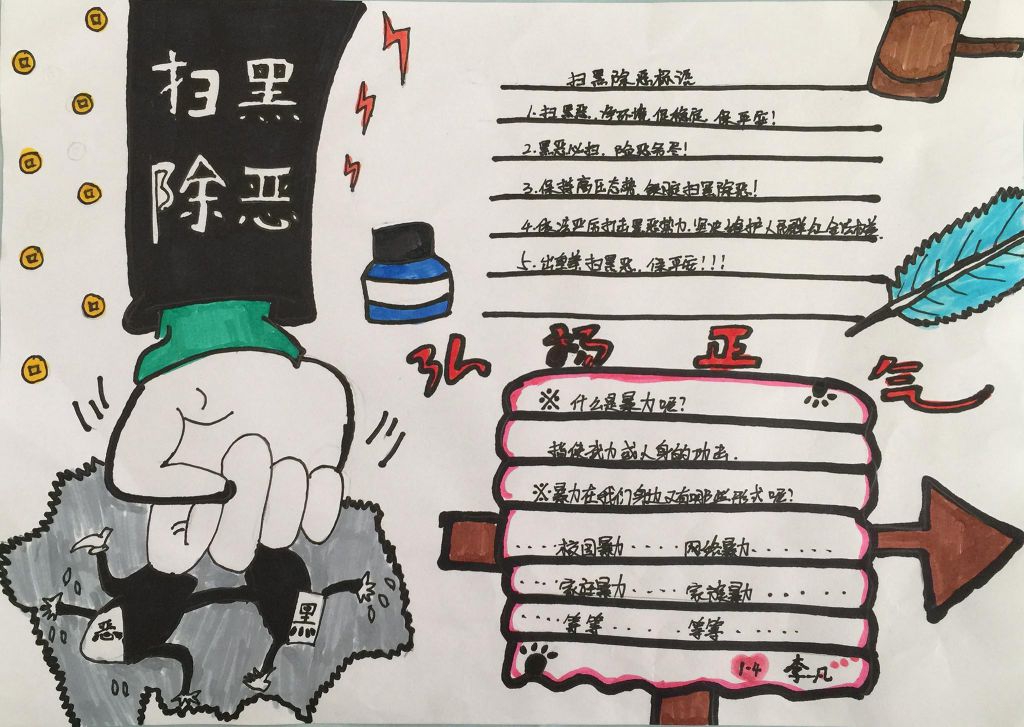 扫黑
除恶
扫黑除恶标语
1.扫黑恶,净环境,促稳定,保平安!
2.黑恶必扫,除恶务尽!
3.保持高压态势,铁腕扫黑除恶!
4.依法严厉打击黑恶势力,坚决维护人民群众合法权益.
5.出重拳,扫黑恶,保平安!!!
弘扬正气
※什么是暴力呢?
指使武力或人身的功击.
※暴力在我们身边又有哪些形式呢?
....校园暴力.....网络暴力.......
....家庭暴力.....家族暴力.....
....等等......等等......
1-4 李凡
恶 黑